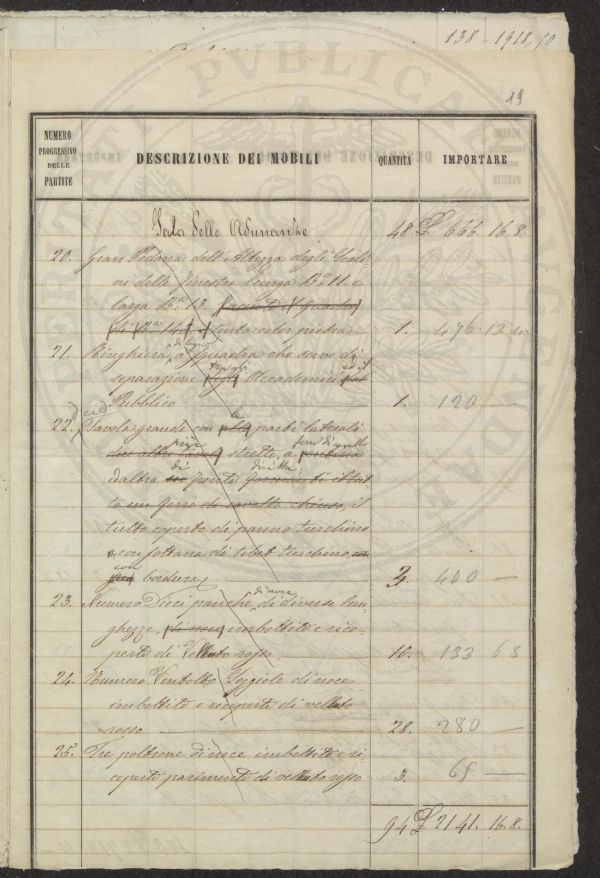 138 - 1918,10
19
NUMERO PROGRESSIVO DELLE PARTITE
DESCRIZIONE DEI MOBILI
QUANTITÀ
IMPORTARE
PVBLICAM
Sala delle Adunanze 48. £ 666. 16. 8.
20. Gran Pedana dell'Altezza degli Scali-
ni delle finestre lunga B.a 11. e
larga B.a 13.
tinta color pietra 1. 476. 12
21. Ringhiera, di legno a squadra che serve di
separazione Accademici
Pubblico 1. 120 —
22. Tavola grande con parti laterali
strette, a
d'altro di fronte
to un ferro di cavallo chiuso, il
tutto coperto di panno turchino
con sottana di tibet turchino
con bordura 3. 400 —
23. Numero Dieci panche, di noce di diverse lun-
ghezze, imbottite e rico-
perte di Velluto rosso 10. 133 6 8
24. Numero Ventotto Seggiole di noce
imbottite e ricoperte di velluto
rosso 28. 280 —
25. Tre poltrone di noce imbottite e ri
coperte parimente di velluto rosso 3. 65 —
94 £ 2141. 16. 8.